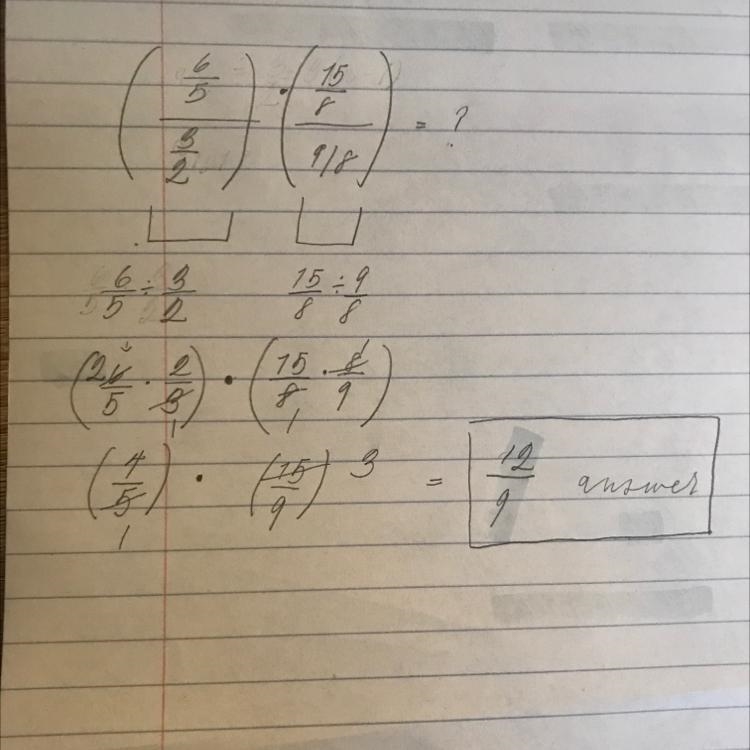 ((6/5)/(3/2)) · ((15/8)/(9/8)) = ?
6/5 ÷ 3/2   15/8 ÷ 9/8
(2 6/5 · 2/3 1) · (15/8 1 · 8/9 1)
(4/5 1) · (15/9) 3 = 12/9 answer